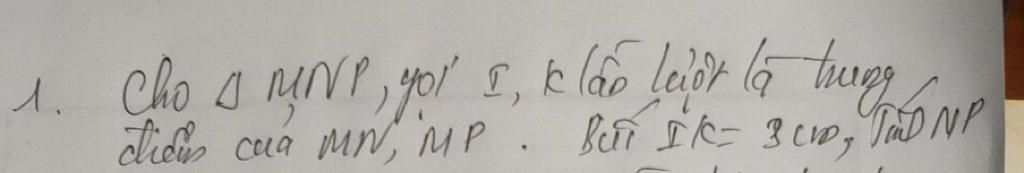 1. Cho Δ MNP, gọi I, K lần lượt là trung
điểm của MN, MP. Biết IK = 3 cm, Tính NP